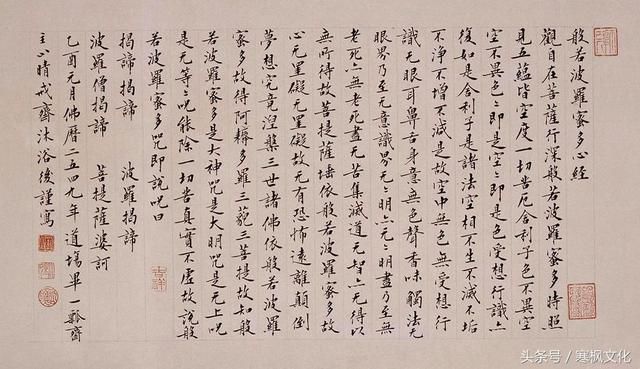 般若波羅蜜多心經
觀自在菩薩行深般若波羅蜜多時照
見五蘊皆空度一切苦厄舍利子色不異空
空不異色色即是空空即是色受想行識亦
復如是舍利子是諸法空相不生不滅不垢
不淨不增不減是故空中無色無受想行
識无眼耳鼻舌身意無色聲香味觸法无
眼界乃至无意識界无無明亦无無明盡乃至無
老死亦無老死盡无苦集滅道无智亦无得以
無所得故菩提薩埵依般若波羅蜜多故
心无罣礙无罣礙故无有恐怖遠離顛倒
夢想究竟涅槃三世諸佛依般若波羅
蜜多故得阿耨多羅三藐三菩提故知般
若波羅蜜多是大神咒是大明咒是无上咒
是无等等咒能除一切苦真實不虛故說般
若波羅蜜多咒即說咒曰
吉祥
揭諦揭諦 波羅揭諦
波羅僧揭諦 菩提薩婆訶
乙酉元月佛曆二五四九年道場畢一瓢齋
主 晴戒齋沐浴後謹寫
头条号 / 寒枫文化